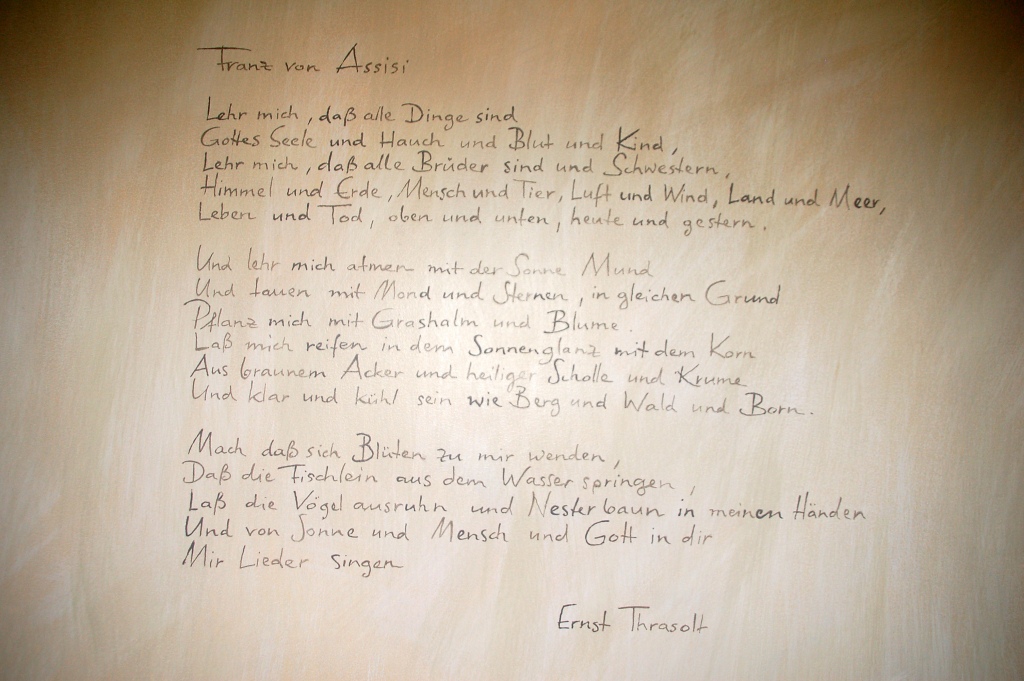 Franz von Assisi
Lehr mich, daß alle Dinge sind
Gottes Seele und Hauch und Blut und Kind,
Lehr mich, daß alle Brüder sind und Schwestern,
Himmel und Erde, Mensch und Tier, Luft und Wind, Land und Meer,
Leben und Tod, oben und unten, heute und gestern.
Und lehr mich atmen mit der Sonne Mund
Und tauen mit Mond und Sternen, in gleichen Grund
Pflanz mich mit Grashalm und Blume.
Laß mich reifen in dem Sonnenglanz mit dem Korn
Aus braunem Acker und heiliger Scholle und Krume
Und klar und kühl sein wie Berg und Wald und Born.
Mach daß sich Blüten zu mir wenden,
Daß die Fischlein aus dem Wasser springen,
Laß die Vögel ausruhn und Nester baun in meinen Händen
Und von Sonne und Mensch und Gott in dir
Mir Lieder singen
Ernst Thrasolt